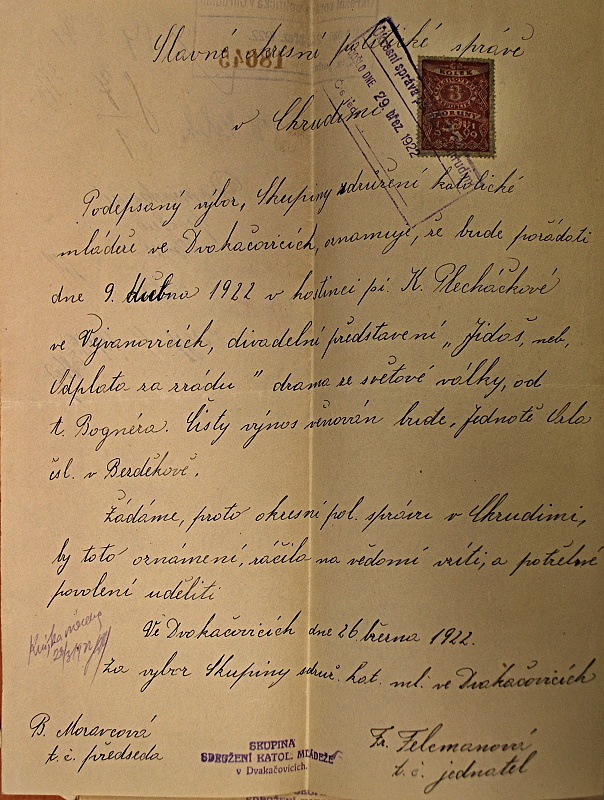 Slavné okresní politické správě
18649
v Chrudimi
Okresní správa
DOŠLO DNE 29. břez. 1922
KOLEK
3
KORUNY
Podepsaný výbor, Skupiny sdružení katolické
mládeže ve Dvakačovicích, oznamuje, že bude pořádati
dne 9. dubna 1922 v hostinci pí. K. Plecháčkové
ve Vejvanovicích, divadelní představení „Jidáš, neb,
Odplata za zrádu" drama ze světové války, od
A. Bognéra. Čistý výnos věnován bude, Jednotě Orla
čsl. v Berděkově.
Žádáme, proto okresní pol. správu v Chrudimi,
by toto oznámení, ráčila na vědomí vzíti, a potřebné
povolení uděliti
Ve Dvakačovicích dne 26. března 1922.
Za výbor Skupiny sdruž. kat. ml. ve Dvakačovicích
B. Moravcová
t. č. předseda
SKUPINA
SDRUŽENÍ KATOL. MLÁDEŽE
v Dvakačovicích.
Fr. Felcmanová
t. č. jednatel